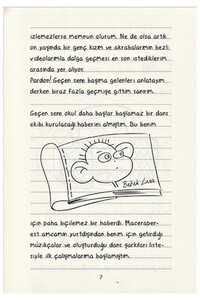 izlemezlerse memnun olurum. Ne de olsa artık
on yaşında bir genç kızım ve akrabalarımın bezli
videolarımla dalga geçmesi en son istediklerim
arasında yer alıyor.
Pardon! Geçen sene başıma gelenleri anlatayım
derken biraz fazla geçmişe gittim sanırım.
Geçen sene okul daha başlar başlamaz bir dans
ekibi kurulacağı haberini almıştım. Bu benim
Bebek Lisa
için paha biçilemez bir haberdi. Maceraper-
est amcamın yurtdışından benim için getirdiği
müzikçalar ve oluşturduğu dans şarkıları liste-
siyle ilk çalışmalarıma başlamıştım.
7